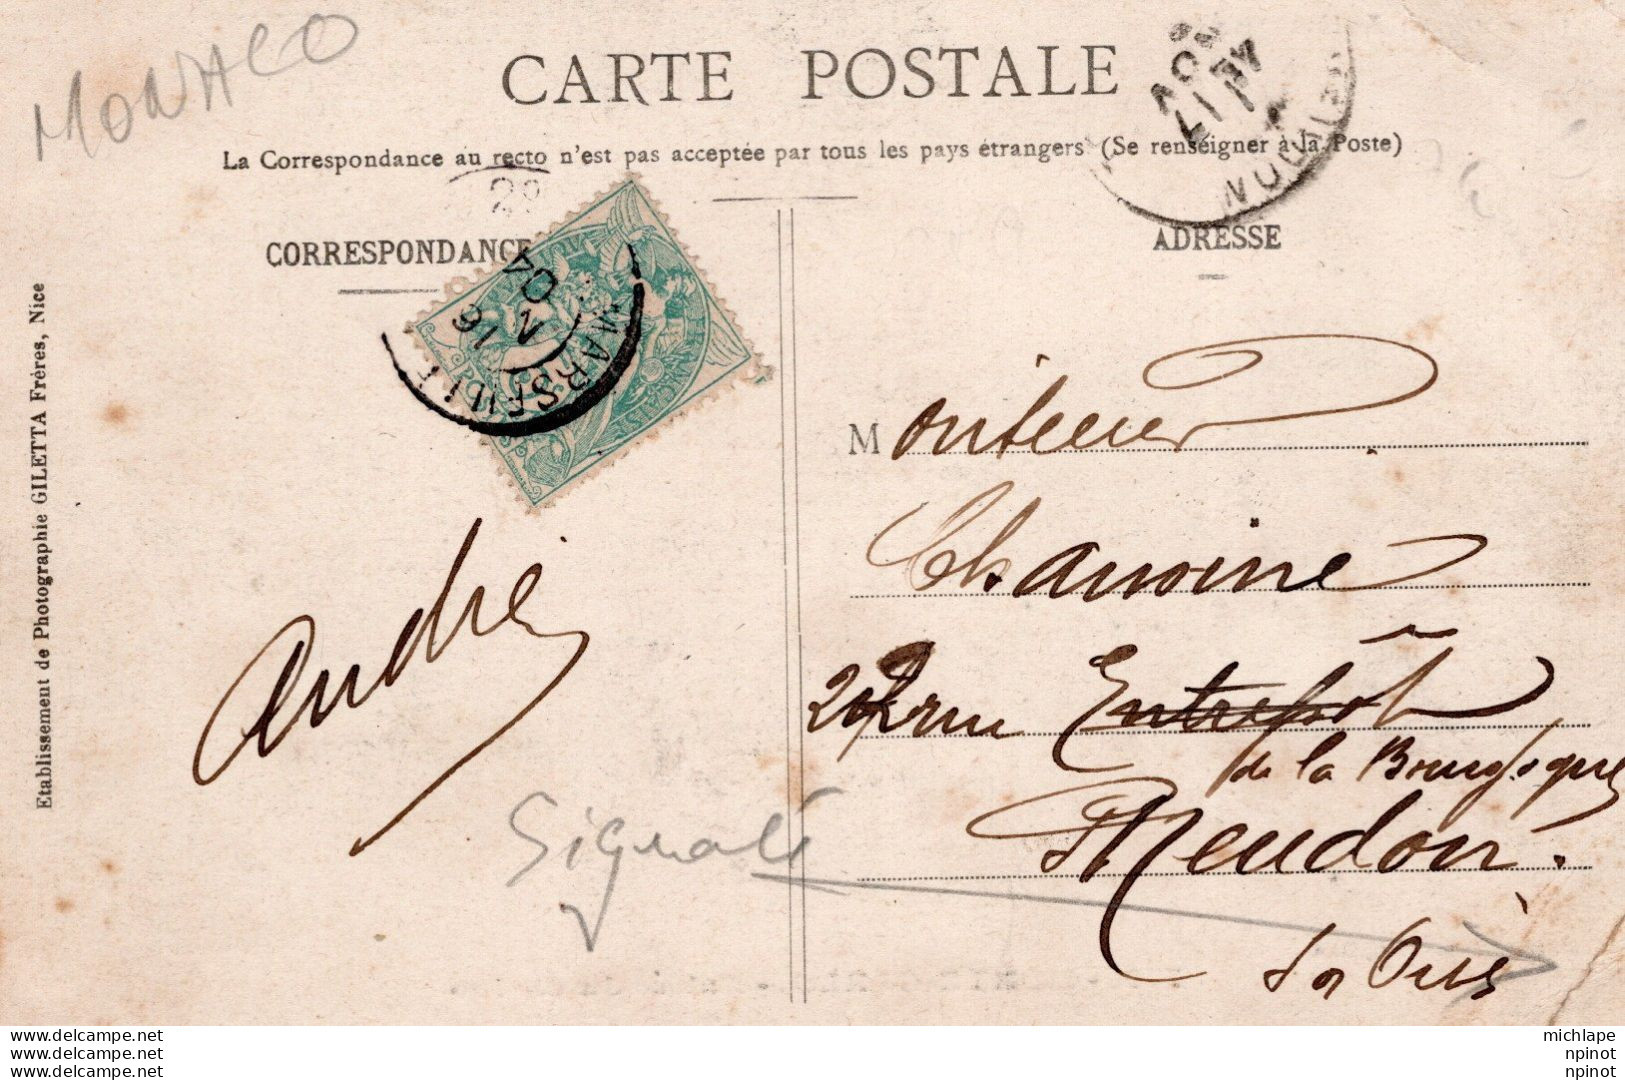 MONACO
CARTE POSTALE
La Correspondance au recto n'est pas acceptée par tous les pays étrangers (Se renseigner à la Poste)
CORRESPONDANCE
ADRESSE
MARSEILLE
16
04
Etablissement de Photographie GILETTA Frères, Nice
Monsieur
Chanoine
rue Entrepôt
de la
Meudon.
André
Signalé
www.delcampe.net
www.delcampe.net
www.delcampe.net
michlape
npinot
npinot